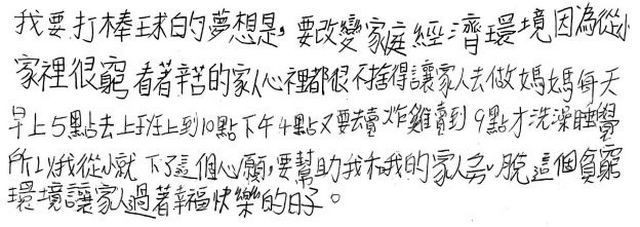 我要打棒球的夢想是,要改變家庭經濟環境因為從小
家裡很窮看著辛苦的家人心裡都很不捨得讓家人去做媽媽每天
早上5點去上班上到10點下午4點又要去賣炸雞賣到9點才洗澡睡覺
所以我從小就下了這個心願,要幫助我和我的家人脫這個貧窮
環境讓家人過著幸福快樂的日子。